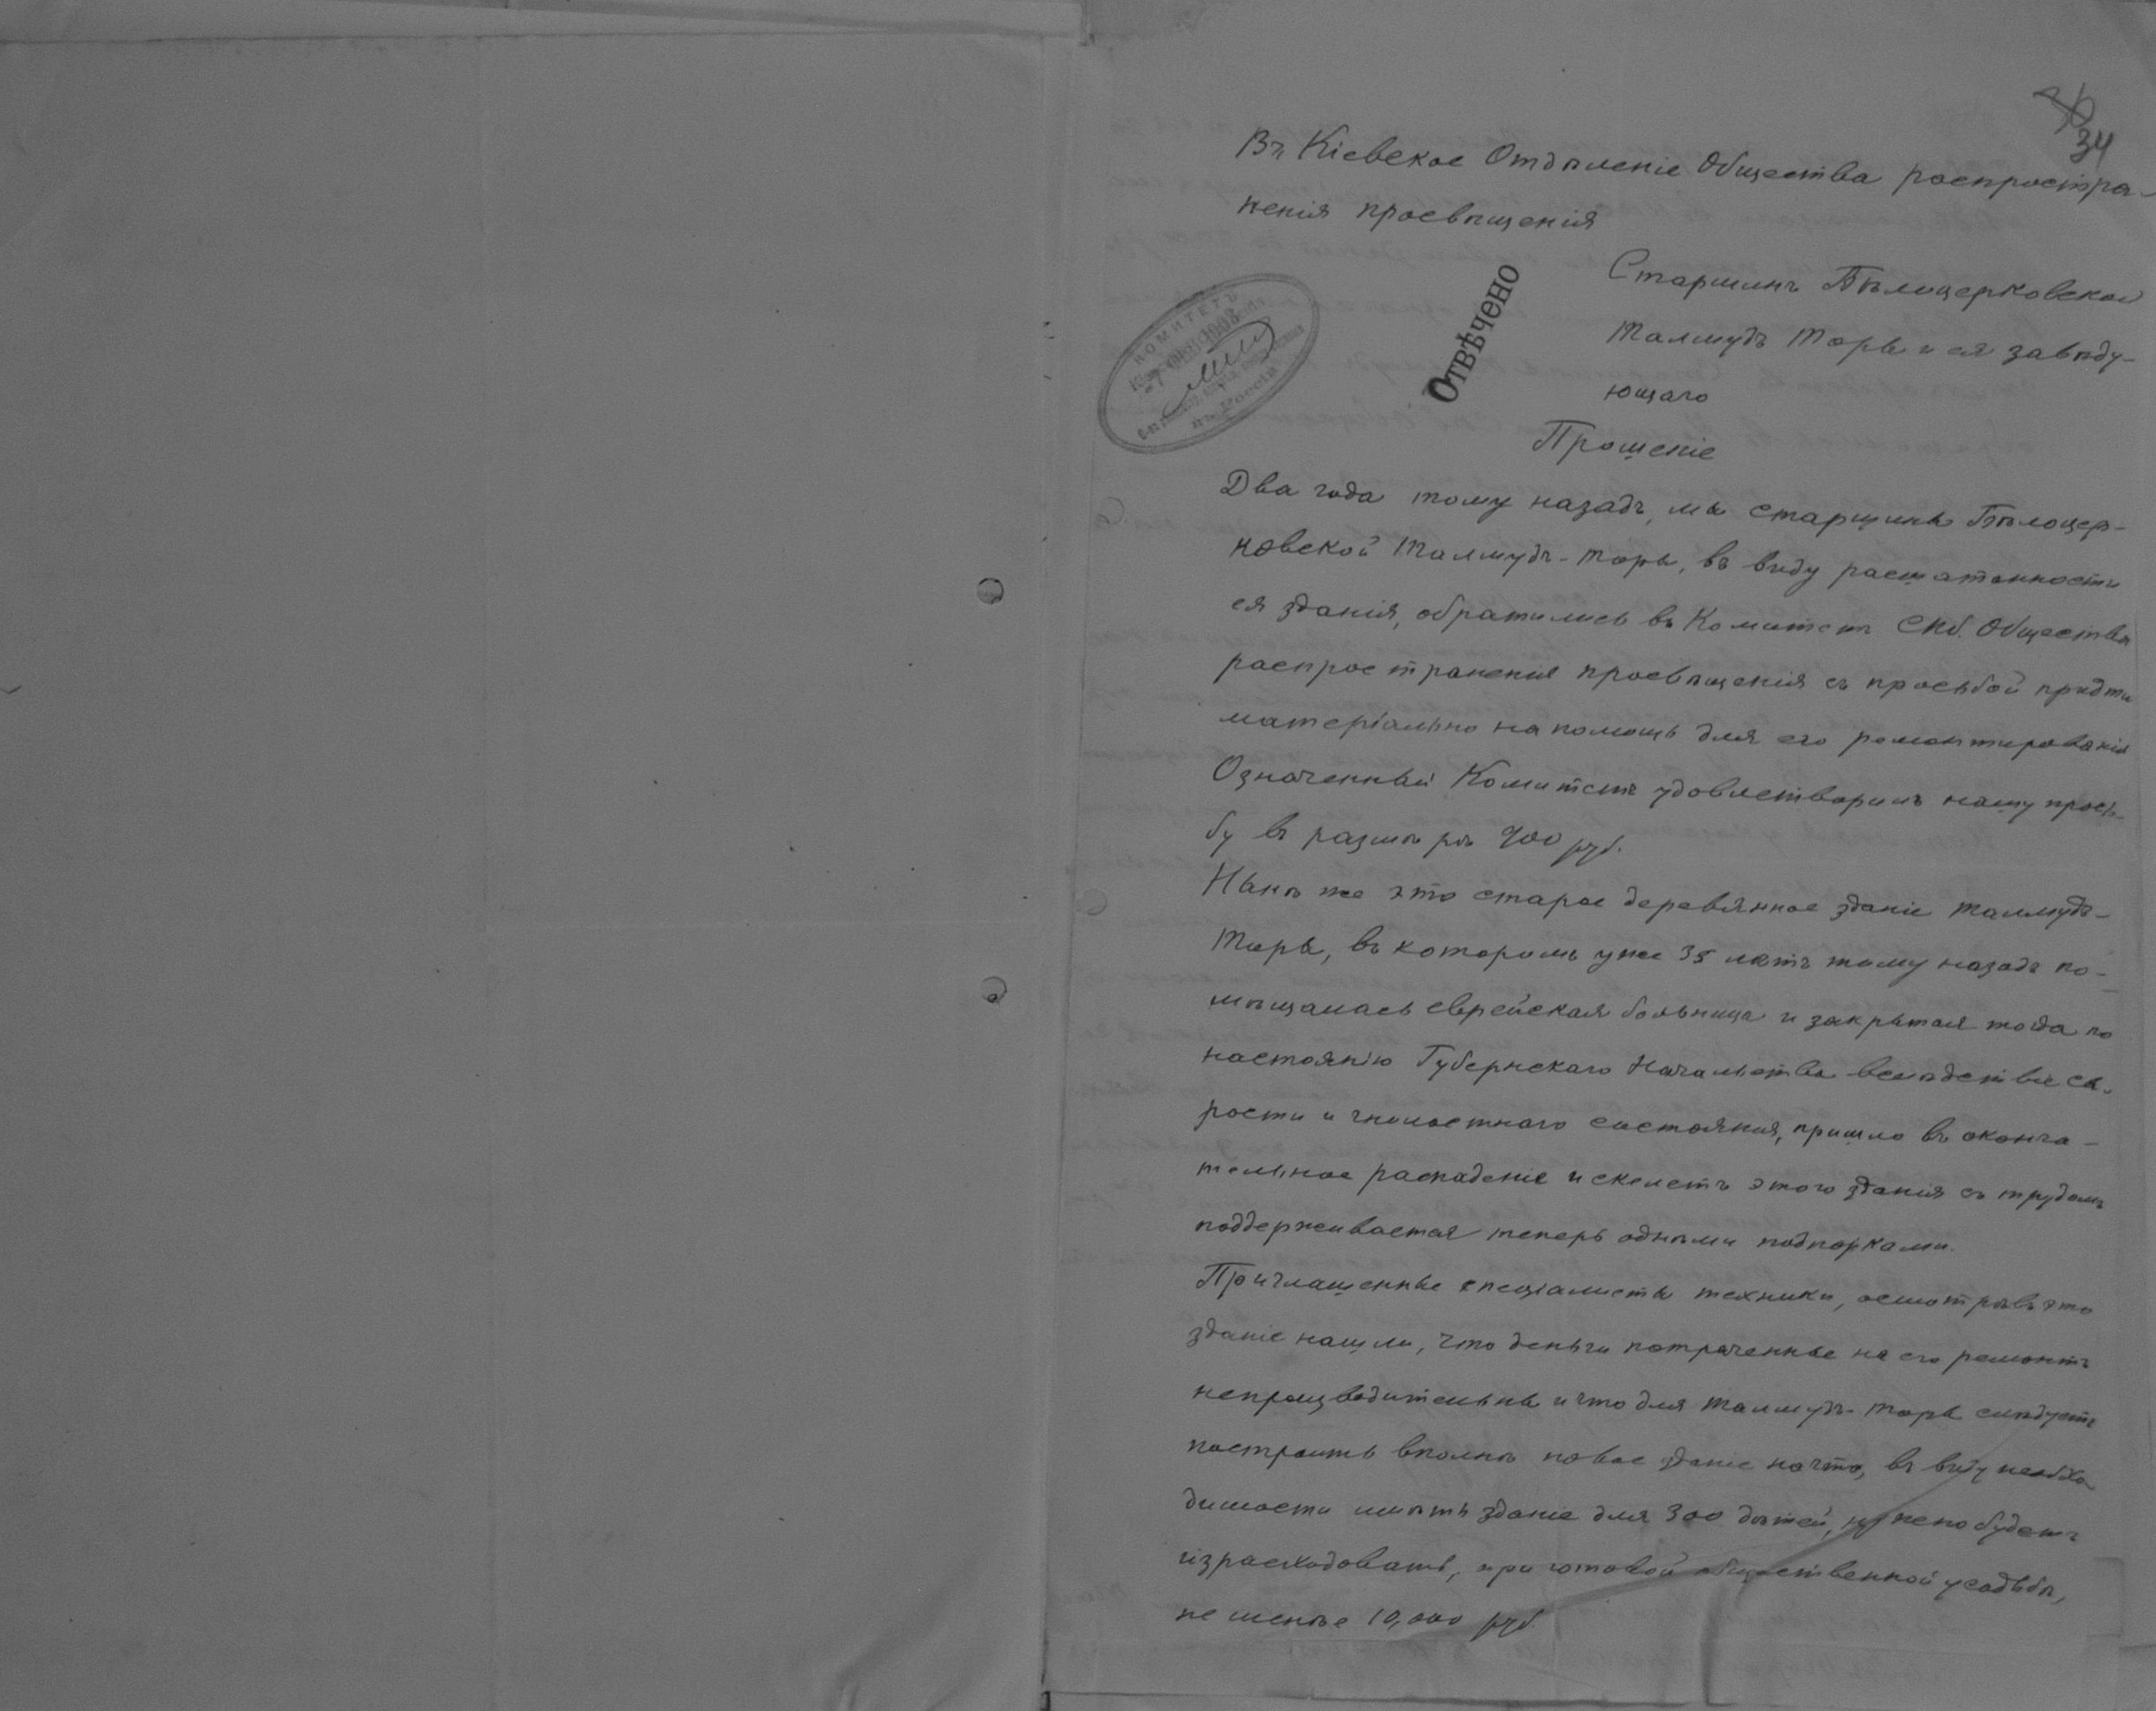 34
Въ Кіевское Отдѣленіе Общества распростра-
ненія просвѣщенія
Старшинъ Бѣлоцерковской
Талмудъ Торы и ея завѣду-
ющаго
Отвѣчено
КОМИТЕТЪ
1908
въ Россіи
Прошеніе
Два года тому назадъ, мы старшины Бѣлоцер-
ковской Талмудъ-Торы, въ виду расшатанности
ея зданія, обратились въ Комитетъ Спб. Общества
распространенія просвѣщенія съ просьбой придти
матеріально на помощь для его ремонтированія
Означенный Комитетъ удовлетворилъ нашу прось-
бу въ размѣрѣ 900 руб.
Нынѣ же это старое деревянное зданіе Талмудъ-
Торы, въ которомъ уже 35 лѣтъ тому назадъ по-
мѣщалась еврейская больница и закрытая тогда по
настоянію Губернскаго Начальства вслѣдствіе ста-
рости и гнилостнаго состоянія, пришло въ оконча-
тельное распаденіе и скелетъ этого зданія съ трудомъ
поддерживается теперь однѣми подпорками.
Приглашенные спеціалисты техники, осмотрѣвъ это
зданіе нашли, что деньги потраченные на его ремонтъ
непроизводительны и что для Талмудъ-Торы слѣдуетъ
построить вполнѣ новое зданіе на что, въ виду необхо
димости имѣть зданіе для 300 дѣтей, нужно будетъ
израсходовать, при готовой общественной усадьбѣ,
не менѣе 10,000 руб.